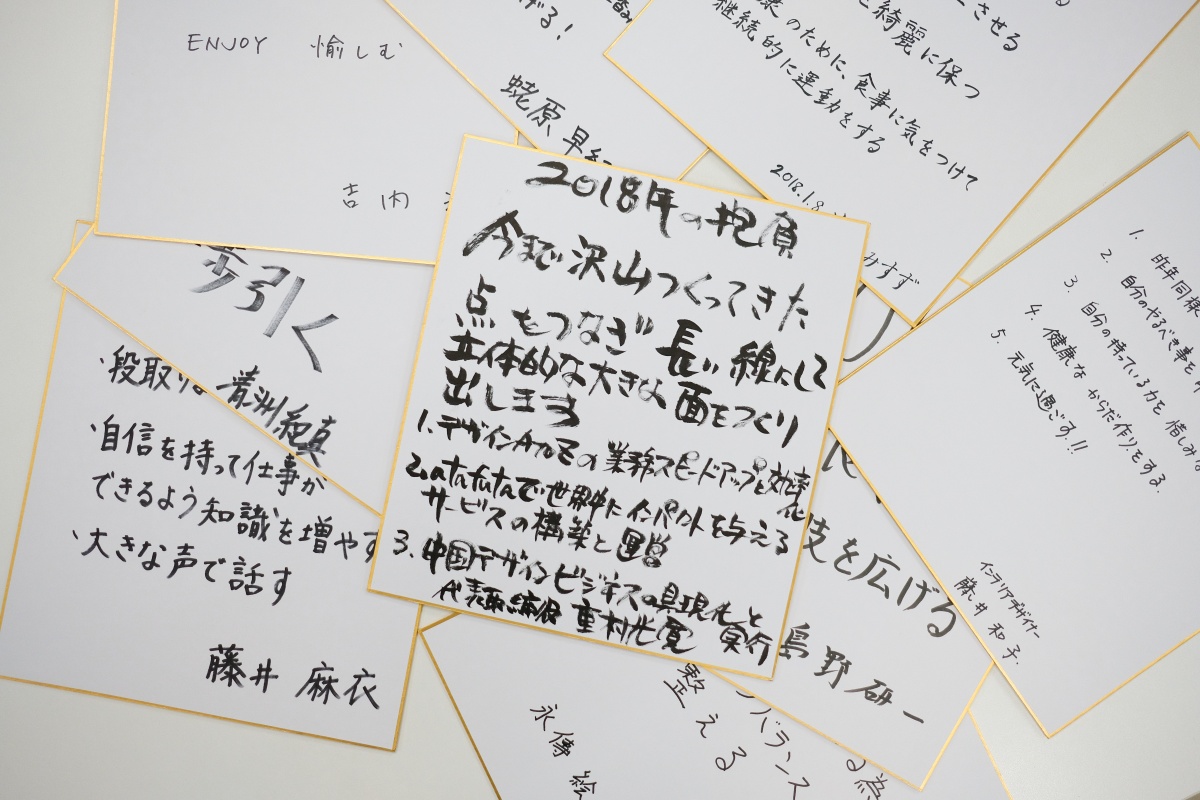 ENJOY 愉しむ
吉内
げる!
蛯原 早紀
させる
綺麗に保つ
のために、食事に気をつけて
継続的に運動をする
2018.1.8
みすず
2018年の抱負
今まで沢山つくってきた
点をつなぎ 長い線にして
立体的な大きな面をつくり
出します
1.デザインカルモの業務スピードアップと効率化
2.atatataで世界中にインパクトを与える
サービスの構築と運営
3.中国デザインビジネスの具現化と実行
代表取締役 重村光寛
歩引く
・段取り
青洲
・自信を持って仕事が
できるよう知識を増やす
・大きな声で話す
藤井 麻衣
1. 昨年同様
2. 自分のやるべき事を
3. 自分の持っている力を 惜しみ
4. 健康な からだ作りをする.
5. 元気に過ごす.!!
インテリアデザイナー
藤井 和子.
を広げる
島野 研一
バランス
整える
永傳 絵
る為